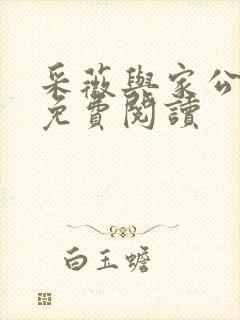 采薇與家公
免費閱讀
白玉蟾